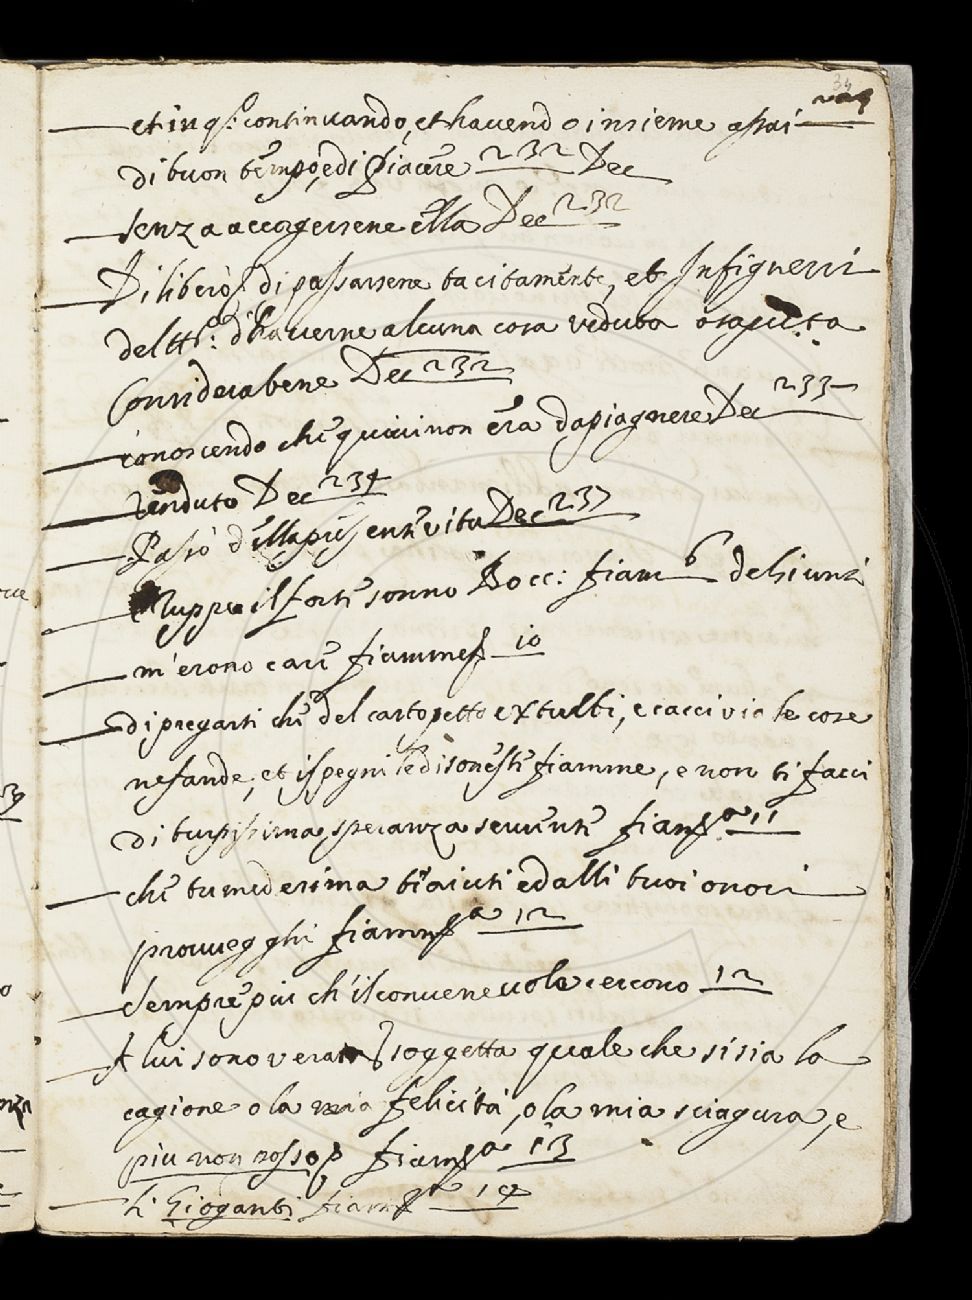 34
et in qsᵗ: continuando, et havendo insieme assai
di buon tempo, e di piacere 232 Dec
senza accorgersene ella Dec 232
Diliberò di passarsene tacitamente, et Infignersi
d'haverne alcuna cosa veduta o saputa
Considera bene Dec 232
conoscendo che quivi non era da piagnere Dec 233
renduto Dec 234
Passò della presente vita Dec 237
Ruppe il forte sonno Bocc: fiam 6
m'erono care fiamme 10
di pregarti che del casto petto extulli, e cacci via le cose
nefande, et ispegni le disoneste fiamme, e non ti facci
di turpissima speranza servente fiamª 11
che tu medesima ti aiuti ed alli tuoi onori
provvegghi fiammª 12
sempre piu ch'il convenevole cercono 12
A lui sono verace soggetta quale che si sia la
cagione o la mia felicità, o la mia sciagura, e
piu non posso fiamª 13
li Gioganti fiamª 14